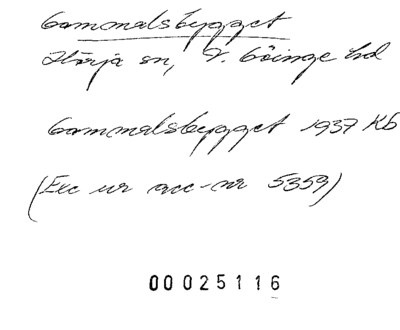 Gammalsbygget
Hörja sn, V. Göinge hd
Gammalsbygget 1937 Kb
(Exc ur acc-nr 5359)
00025116